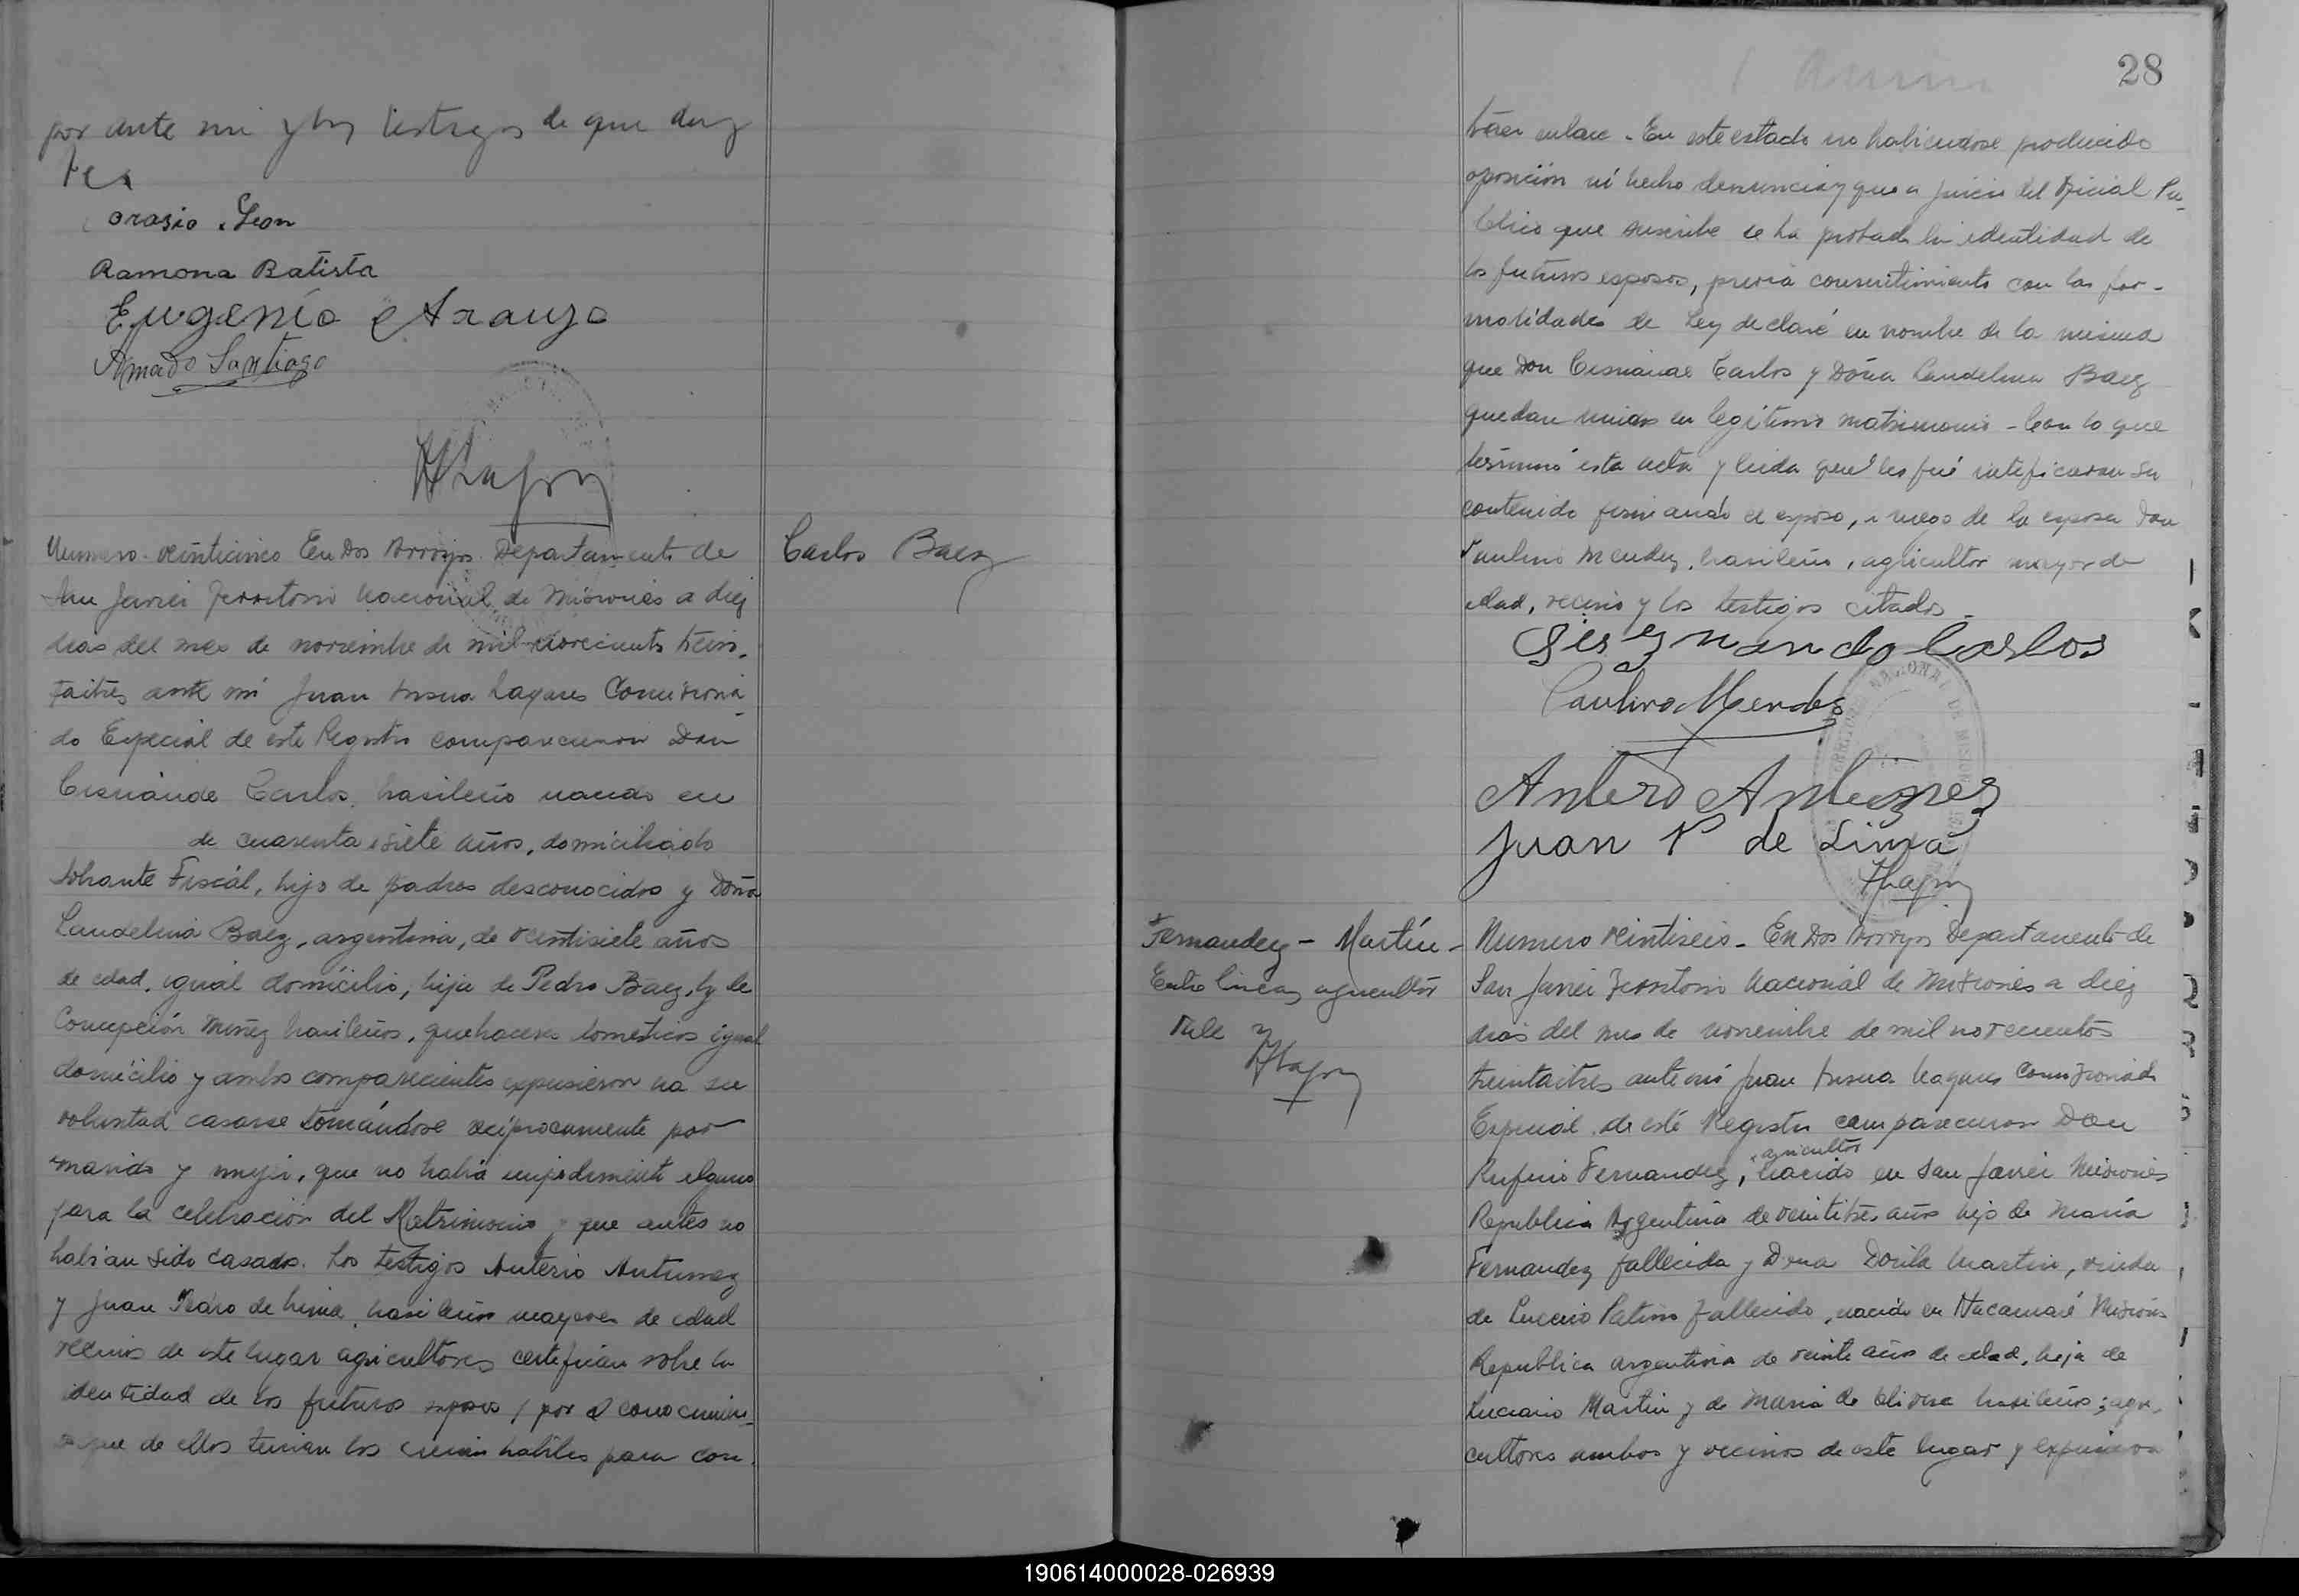 por ante mi y los testigos de que doy
fe
orasio. Leon
Ramona Batista
Eugenio Araujo
Amado Santiago
Numero veinticinco En Dos Arroyos Departamento de
San Javier Territorio Nacional de Misiones a diez
dias del mes de noviembre de mil novecientos trein-
taitres ante mi Juan Insua Lagares Comisiona-
do Especial de este Registro comparecieron Don
Cisnande Carlos, brasileño nacido en
de cuarenta y siete años, domiciliado
Sobrante Fiscál, hijo de padres desconocidos y Doña
Laudelina Baez, argentina, de veintisiete años
de edad, igual domicilio, hija de Pedro Báez, y de
Concepción Muñez brasileños, quehaceres domesticos igual
domicilio y ambos comparecientes expusieron ua su
voluntad casarse tomándose reciprocamente por
marido y mujer, que no habia impedimento alguno
para la celebración del Matrimonio y que antes no
habian sido casados. Los testigos Anterio Antunez
y Juan Pedro de Lima, brasileños mayores de edad
vecinos de este lugar agricultores certifican sobre la
identidad de los futuros esposos / por el conocimien-
que de ellos tenian los creian habiles para con-
Carlos Baez
28
traer enlace - En este estado no habiendose producido
oposición ni hecho denuncia y que a juicio del Oficial Pu-
blico que suscribe se ha probado la identidad de
los futuros esposos, previa consentimiento con las for-
malidades de Ley declaré en nombre de la misma
que Don Cisnande Carlos y Doña Laudelina Baez
quedan unidos en legitimo matrimonio - Con lo que
terminó esta acta y leida que les fué ratificaron su
contenido firmando el esposo, a ruego de la esposa Don
Paulino Mendez, brasileño, agricultor mayor de
edad, vecino y los testigos citados -
Sisznando Carlos
Paulino Mendes
Antero Antunez
Juan P de Lima
Fernandez - Martín -
Entre lineas agricultor
Vale
Numero veintiseis - En Dos Arroyos Departamento de
San Javier Territorio Nacional de Misiones a diez
dias del mes de noviembre de mil novecientos
treintaitres ante mi Juan Insua Lagares Comisionado
Especial de este Registro comparecieron Don
agricultor
Rufino Fernandez, nacido en San Javier Misiones
Republica Argentina de veintitres años hijo de Maria
Fernandez fallecida y Dona Dorila Martin, viuda
de Patino fallecido, nacido en Ñacamaré Misiones
Republica Argentina de veinte años de edad, hija de
Luciano Martin y de Maria de Olivera brasileños; agri-
cultores ambos y vecinos de este lugar y expusieron
190614000028-026939